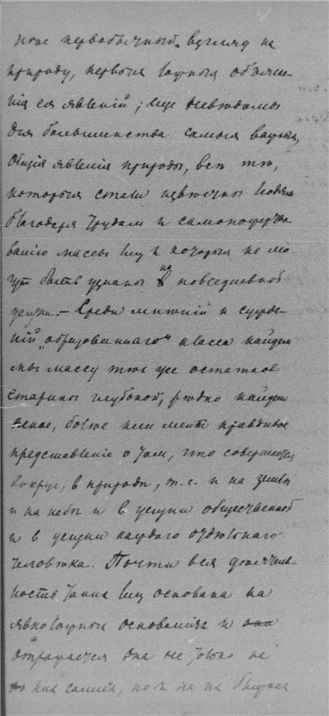 ное первобытный взгляд на
природу, первыя ложныя объясне-
нія ея явленій; еще неведомы
для большинства самыя важныя,
общія явленія природы, всѣ тѣ,
которыя стали извѣстны людямъ
благодаря трудам и самопожертво-
ванію массы лиц и которыя не мо-
гут быть узнаны из повседневной
жизни. — Среди мнѣній и сужде-
ній „образованнаго" класса найдем
мы массу тѣх же остатков
старины глубокой, рѣдко найдем
ясное, более или менее правдивое
представленіе о том, что совершается
вокруг, в природѣ, т. е. и на земле
и на небѣ и в жизни общественной
и в жизни каждаго отдѣльнаго
человѣка. Почти вся деятель-
ность таких лиц основана на
явно ложных основаніях и
отражается она не только на
них самих, но и на их